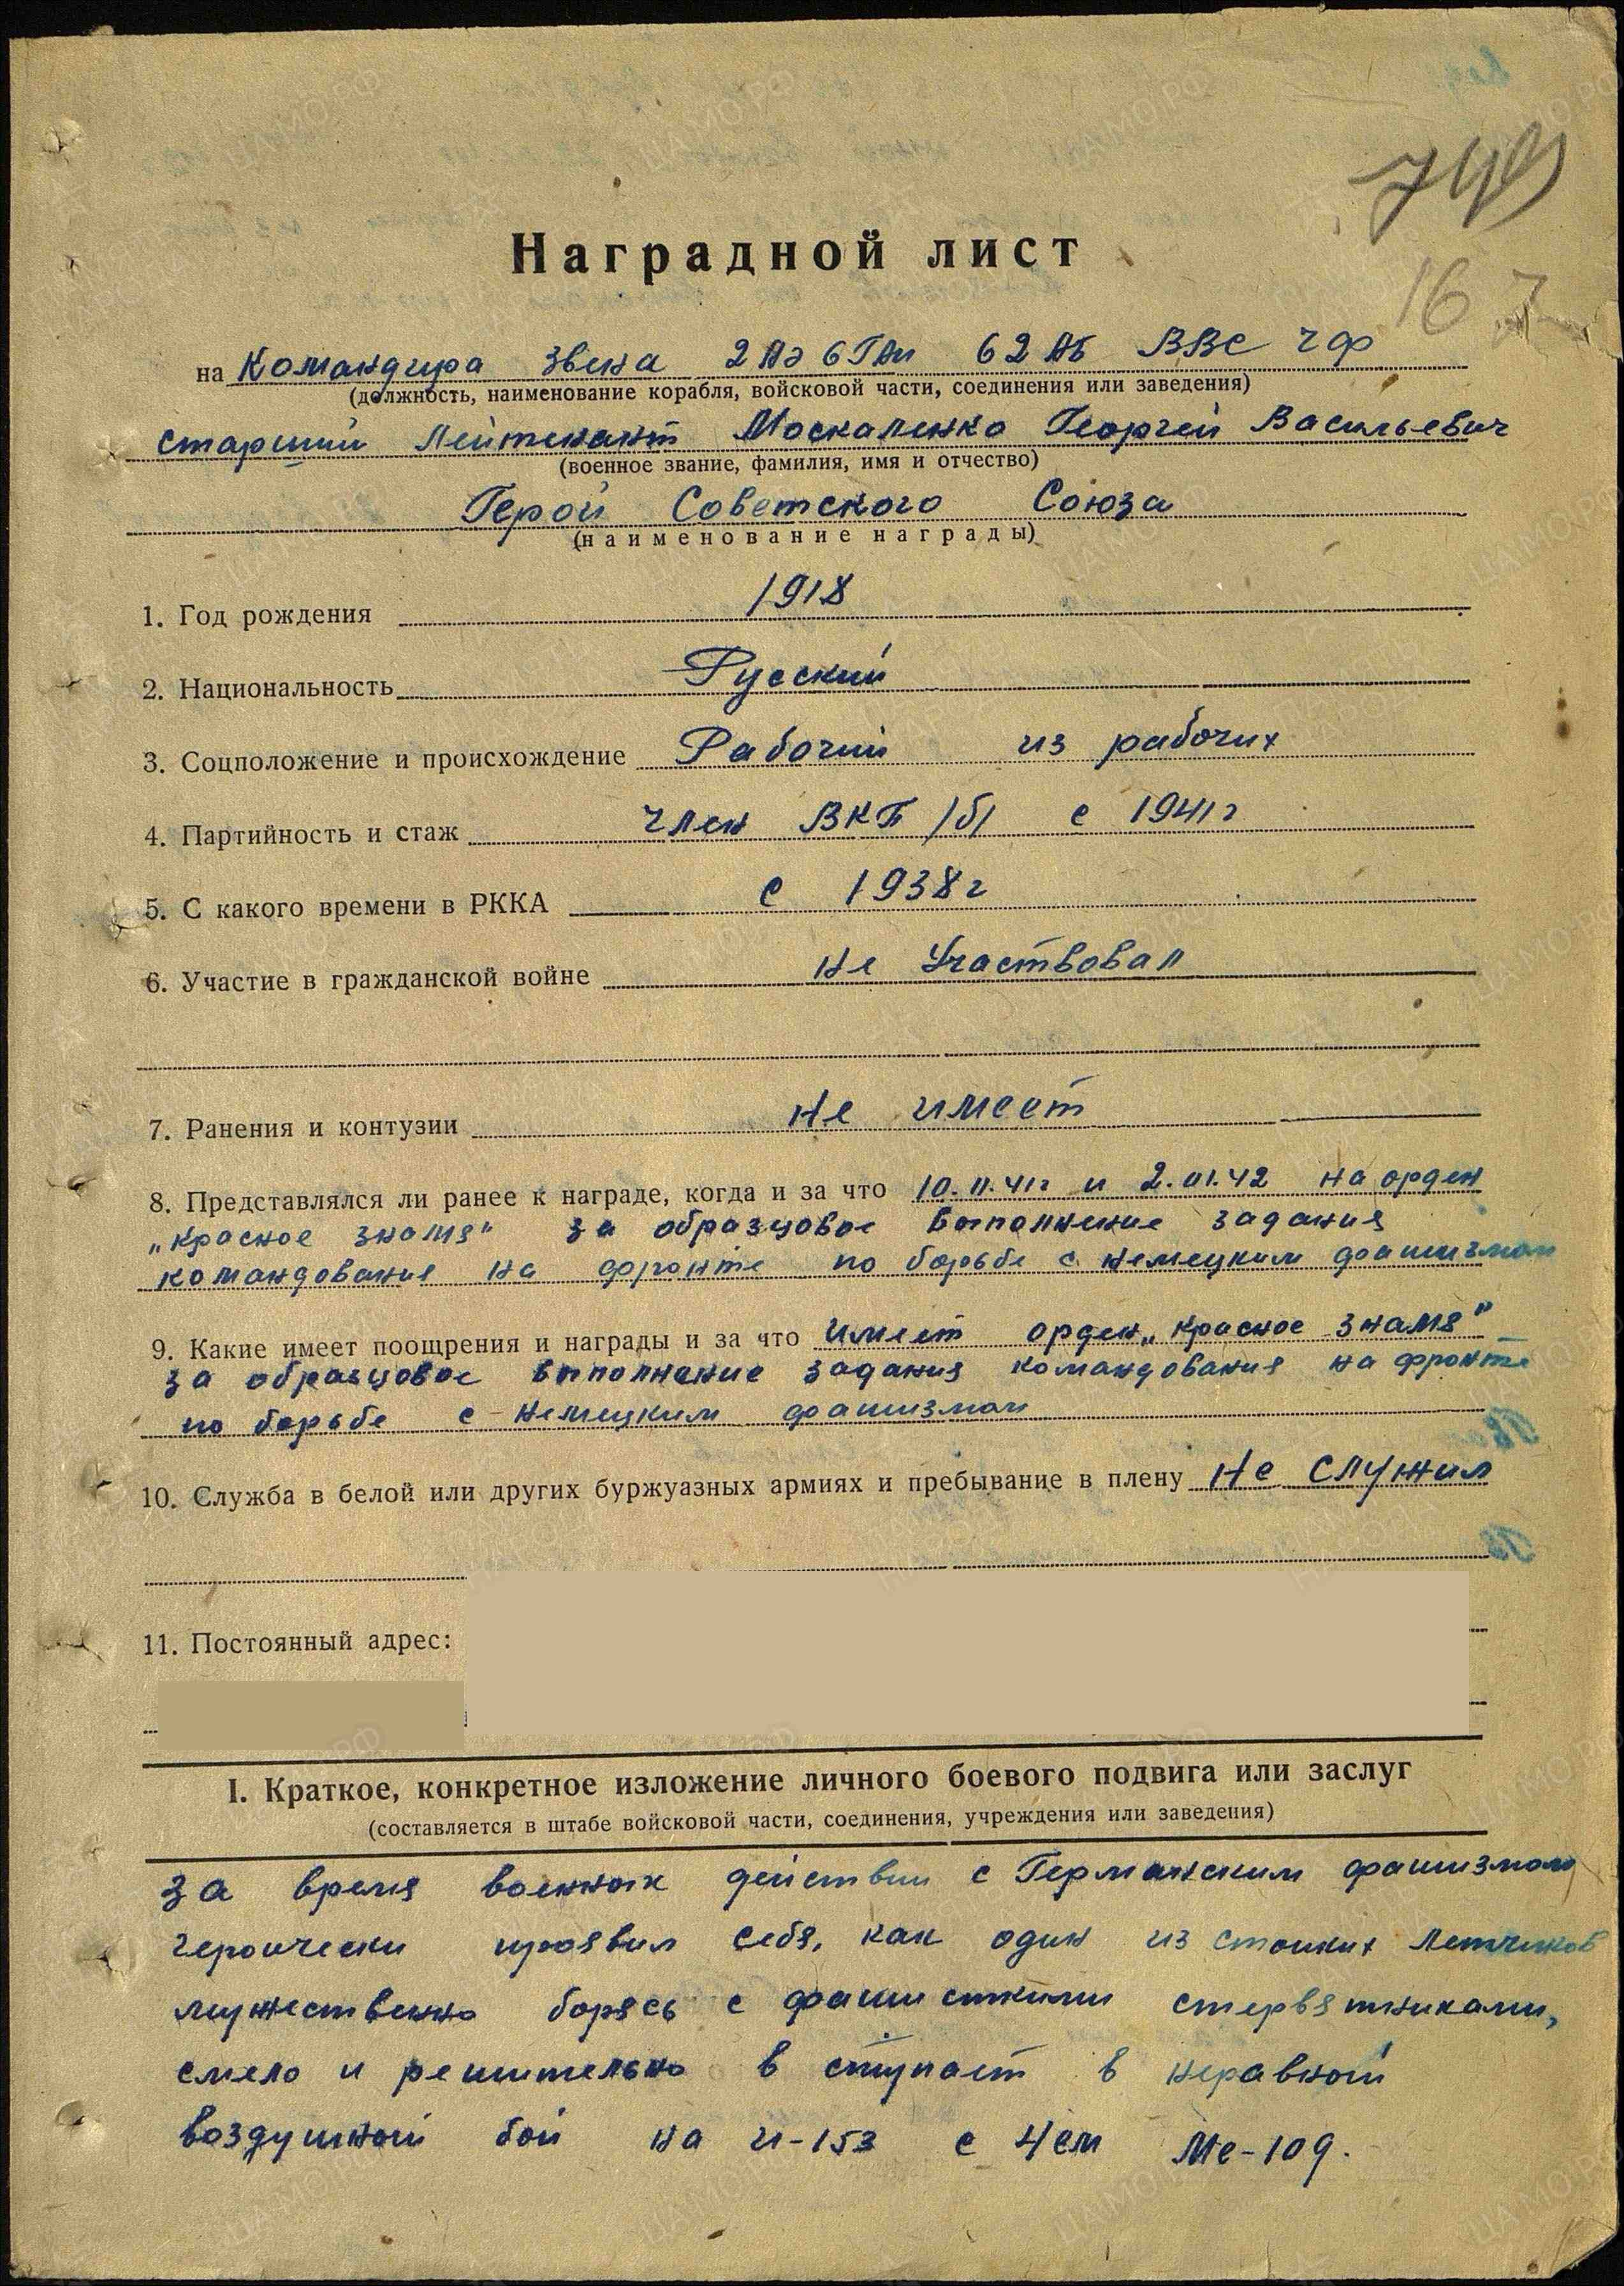 749
16 7
Наградной лист
на Командира звена 2 АЭ 6 ГАП 62 АБ ВВС ЧФ
(должность, наименование корабля, войсковой части, соединения или заведения)
старший Лейтенант Москаленко Георгий Васильевич
(военное звание, фамилия, имя и отчество)
Герой Советского Союза
(наименование награды)
1. Год рождения 1918
2. Национальность Русский
3. Соцположение и происхождение Рабочий из рабочих
4. Партийность и стаж Член ВКП /б/ с 1941г
5. С какого времени в РККА с 1938г
6. Участие в гражданской войне не Участвовал
7. Ранения и контузии не имеет
8. Представлялся ли ранее к награде, когда и за что 10.11.41г и 2.01.42 на орден
„Красное знамя" за образцовое выполнение задания
командования на фронте по борьбе с немецким фашизмом
9. Какие имеет поощрения и награды и за что имеет орден „Красное знамя"
за образцовое выполнение задания командования на фронте
по борьбе с немецким фашизмом
10. Служба в белой или других буржуазных армиях и пребывание в плену Не служил
11. Постоянный адрес:
I. Краткое, конкретное изложение личного боевого подвига или заслуг
(составляется в штабе войсковой части, соединения, учреждения или заведения)
За время военных действий с Германским фашизмом
героически проявил себя, как один из стойких Летчиков
мужественно борясь с фашисткими стервятниками,
смело и решительно в ступает в неравной
воздушной бой на И-153 с 4ем Ме-109.